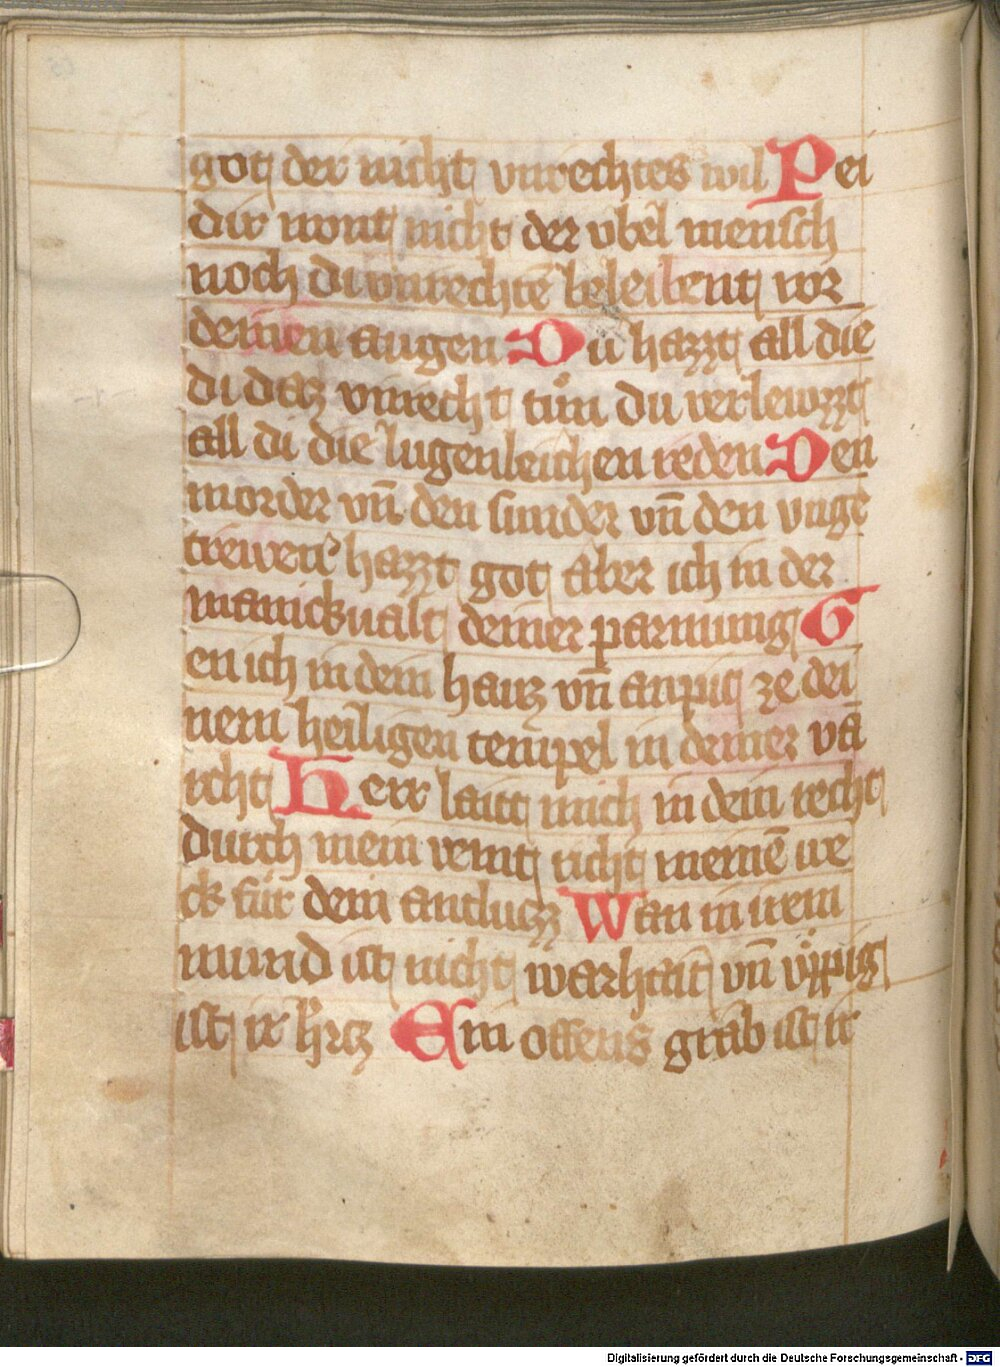 got der nicht vnrechtes wil Pei
dir wont nicht der vbel mensch
noch di vnrechtē beleibent vor
deinen augen Du hazzt all die
di daz vnrecht tůn du verlewzzt
all di die lugenleichen reden Den
morder vn̄ den sunder vn̄ den vnge
trewen hazzt got Aber ich in der
manickualt deiner parmung G
en ich in dein hauz vn̄ anpitt ze dei
nem heiligen tempel in deiner va
rcht Herr laitt mich in dein recht
durch mein veint richt meinē we
ck für dein antluczz Wan in irem
mund ist nicht warhait vn̄ vppig
ist ir hercz Ein offens grab ist ir
Digitalisierung gefördert durch die Deutsche Forschungsgemeinschaft - DFG